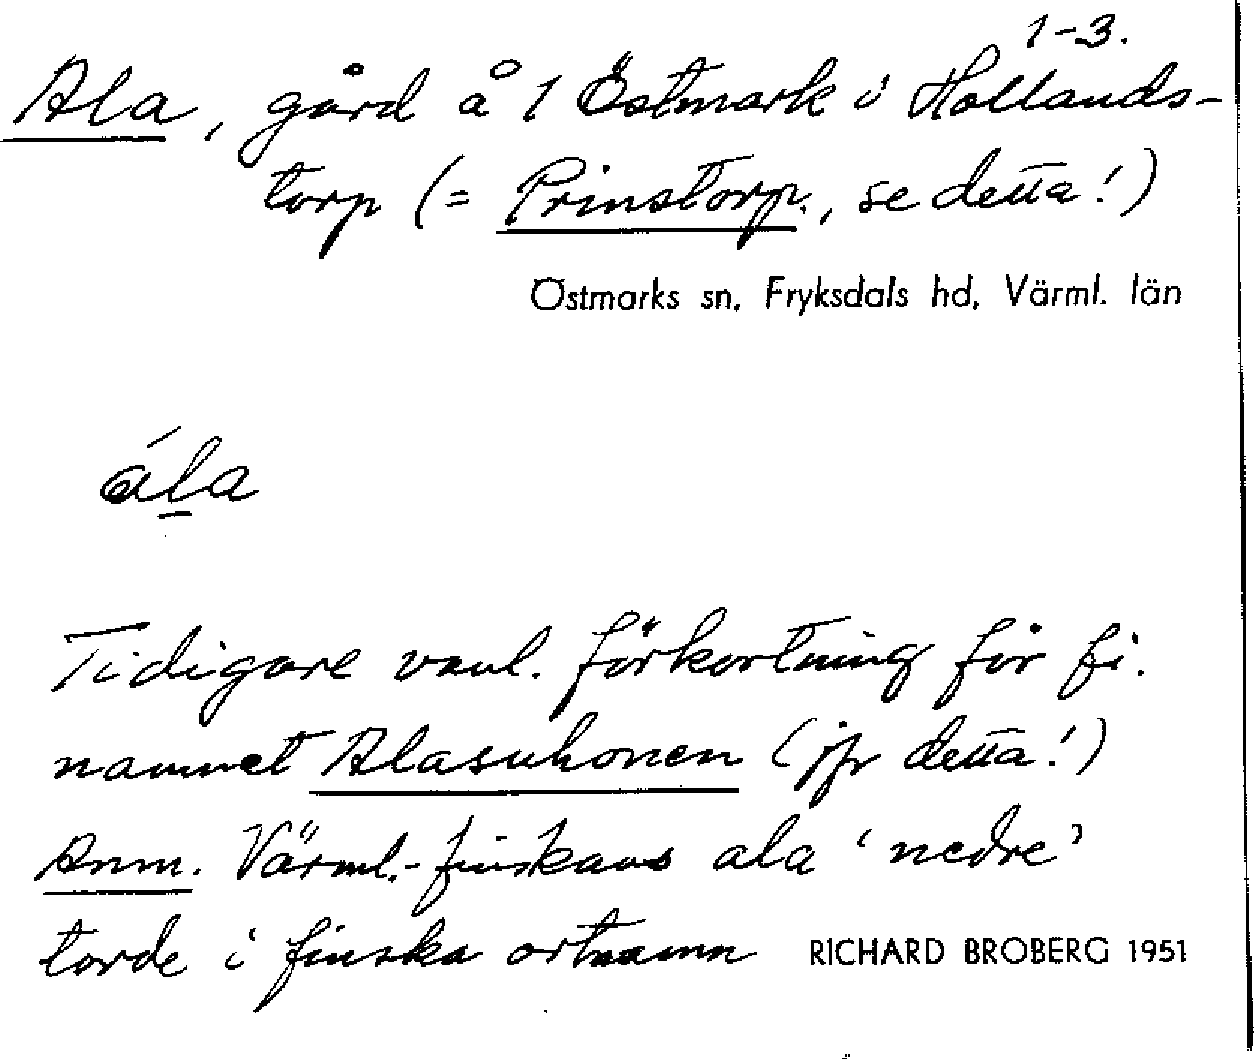 1-3.
Ala, gård å 1 Östmark i Hollands-
torp (= Prinstorp., se detta!)
Östmarks sn, Fryksdals hd, Värml. län
ála
Tidigare vanl. förkortning för fi.
namnet Alasuhonen (jfr detta!)
Anm. Värml.-finskans ala 'nedre'
torde i finska ortnamn
RICHARD BROBERG 1951